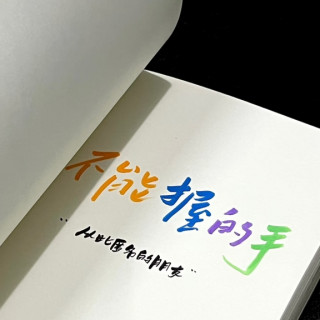 不能握的手
"从此匿名的朋友"